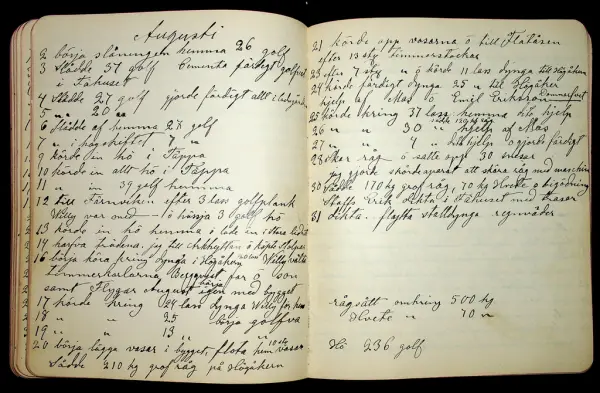 Augusti
2 börja slåningen hemma 26 golf
3 Slådde 37 golf Cementa färdigt golfvet
i Fähuset
4 Slådde 27 golf gjorde färdigt allt i ladugården
5 " " 20 "
6 Slådde af hemma 28 golf
7 " i
9 körde in hö i Tappa
10 körde in allt hö i Tappa
11 " in 39 golf hemma
12 till Tärnviken efter 3 lass golfplank
Willy var med hässja 3 golf hö
13 körde in hö hemma i lade in i stora ladet
14 harfva trädena. jag till o köpte Stolpar
16 börja köra kring dynga i Högåkern 20 lass Willy
timmerkarlarna, Bergquist far o son
samt Flygar August börja igen med bygget
17 körde kring 24 lass dynga Willy for hem
18 " " 25 börja golfva
19 " " 13 "
20 börja lägga vasar i bygget, flota hem 10 st vasar
Sådde 210 kg grof råg på Högåkern
21 körde opp vasarna o till Flatåsen
efter 13 st timmerstockar
23 efter 7 st " o körde 11 lass dynga till Högåkern
24 körde färdigt dynga 25 " till Högåker
hjelp af Mas o Emil Eriksson
25 körde kring 37 lass hemma 2 hjelp
26 " " 30 " hjelp af Mas
27 " " 4 hjelp o gjorde färdigt
28 skar råg o satte opp 30 mesar
jag gjorde skärapparat att skära råg med maschin
30 Sådde 170 kg grof råg, 70 kg Hvete o bigödning
Staffs Erik dikta i Fähuset med brasar
31 dikta.. flytta stalldynga regnväder
rågsått omkring 500 kg
Hvete " 70 "
Hö 236 golf